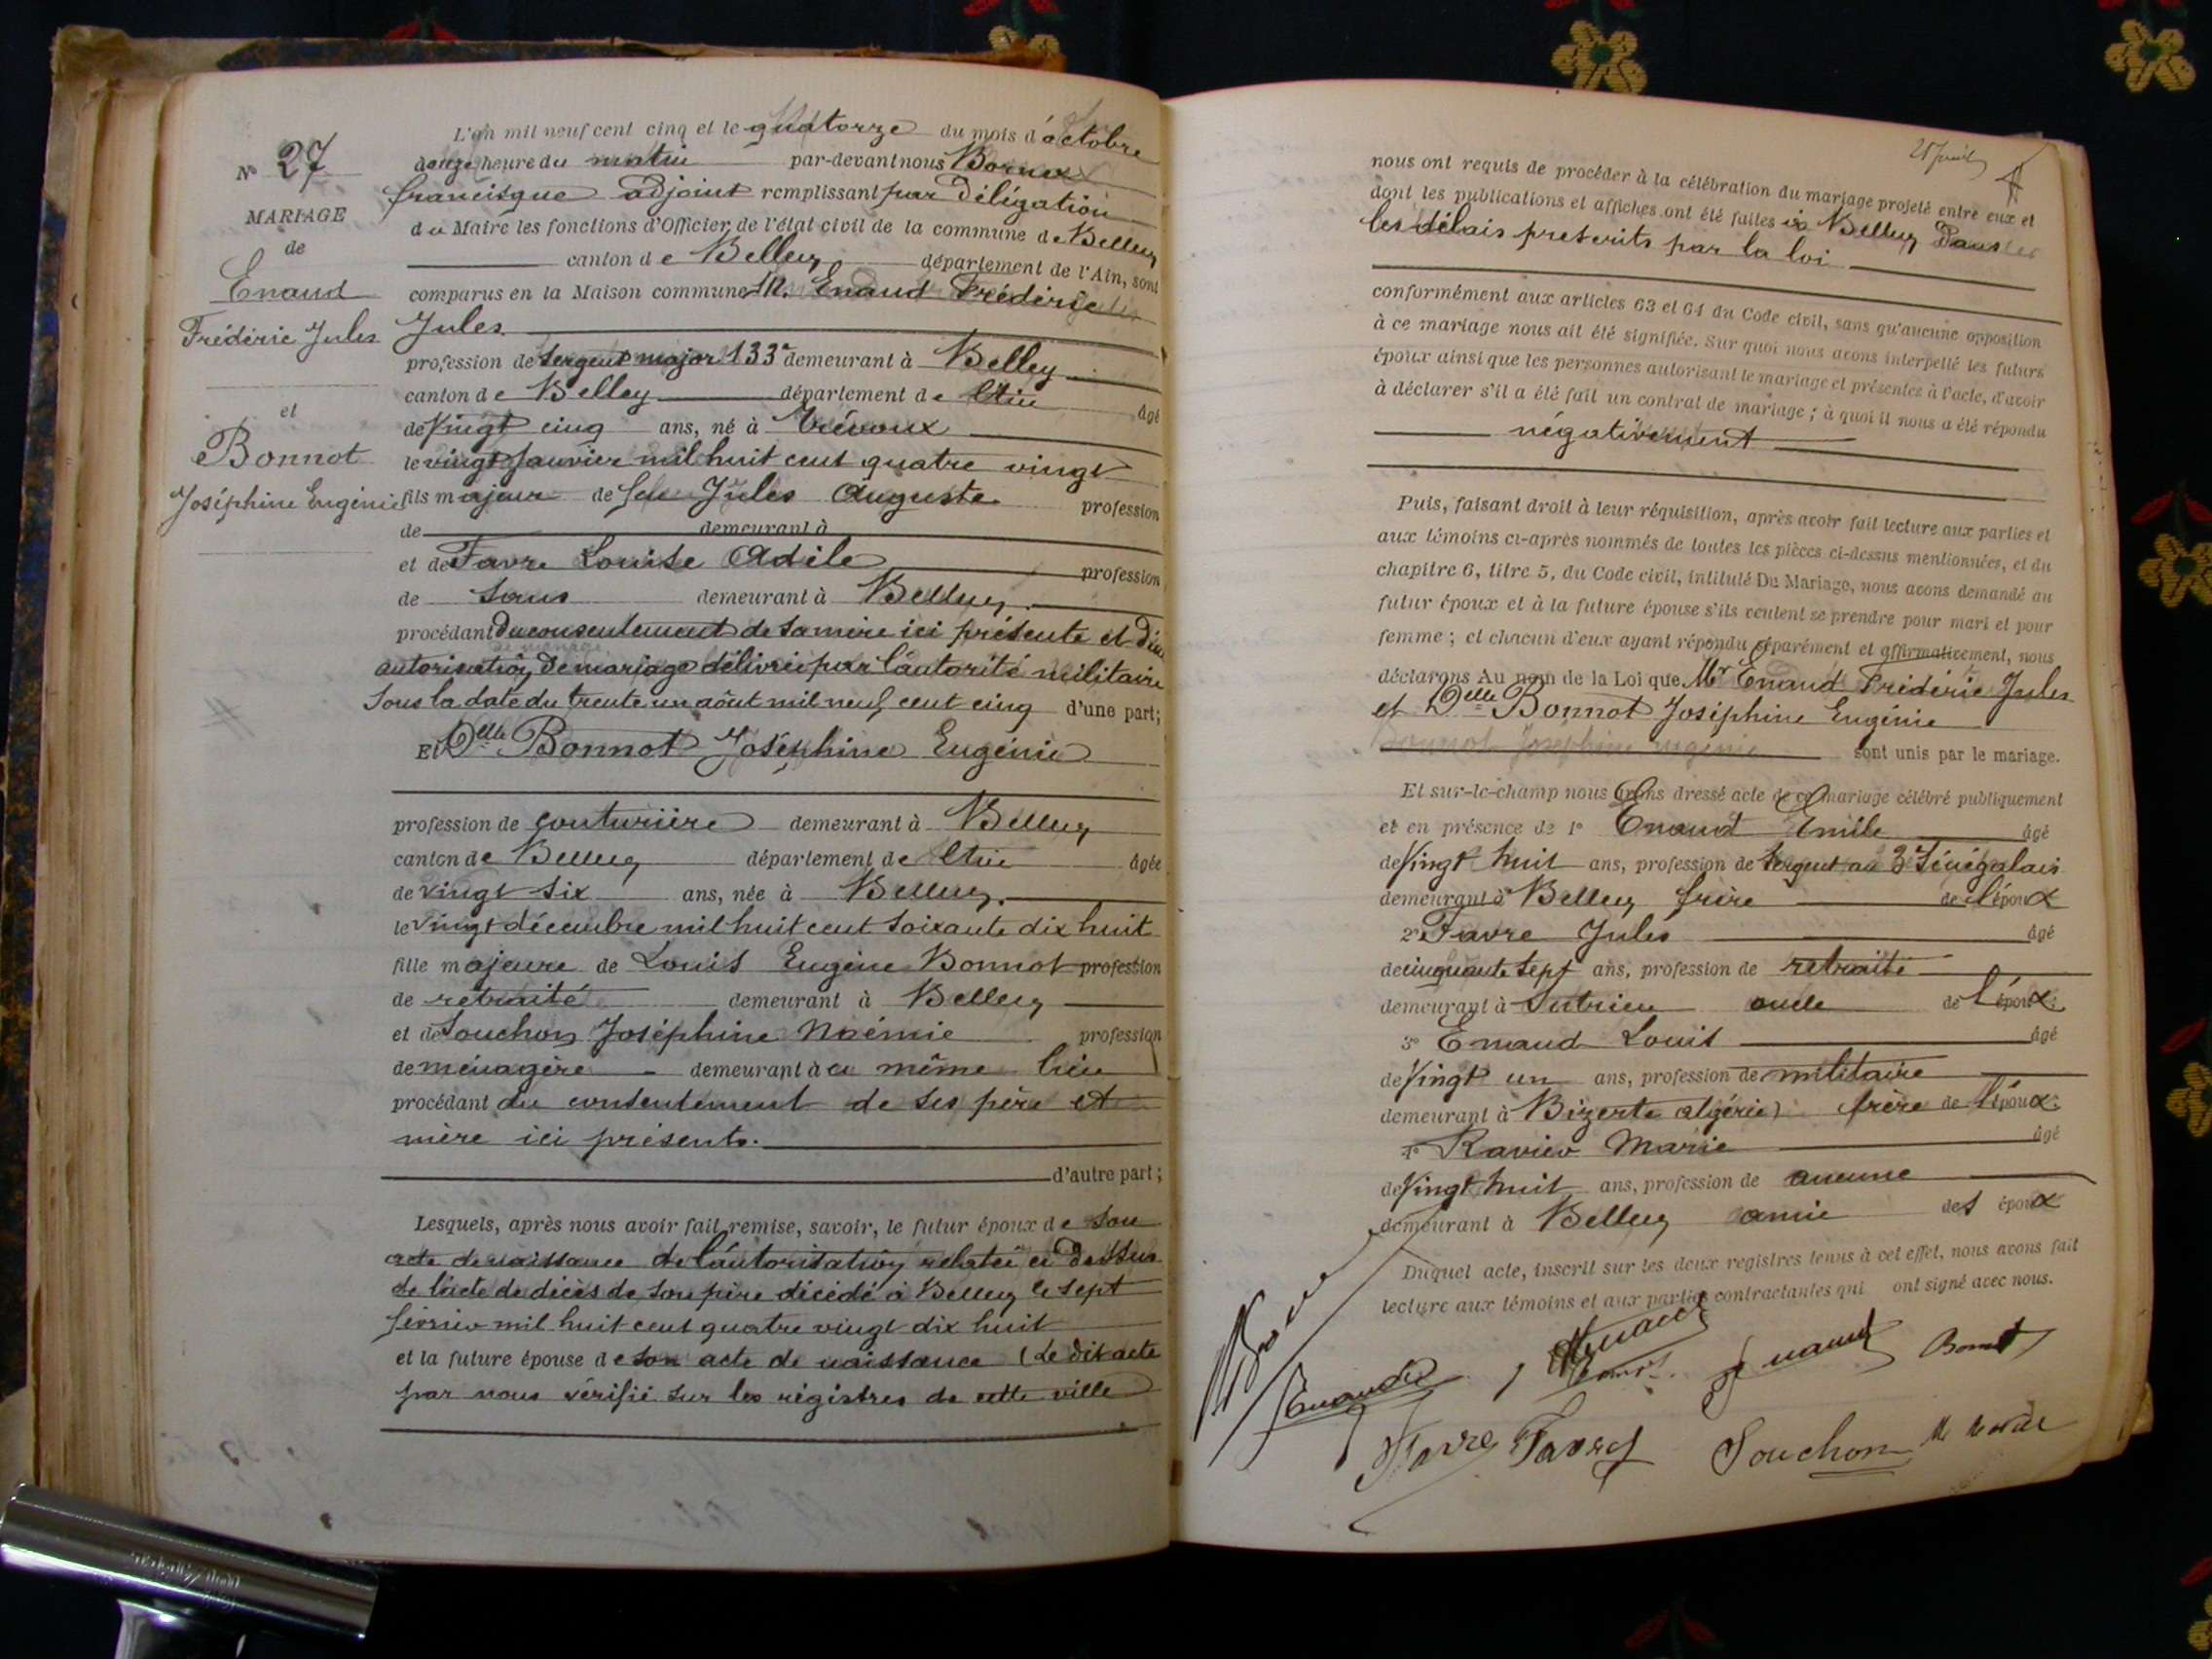 N° 27
MARIAGE
de
Enaud
Frédéric Jules
et
Bonnot
Joséphine Eugénie
L'an mil neuf cent cinq et le quatorze du mois d'octobre
à onze heure du matin par-devant nous Bornex
francisque adjoint remplissant par délégation
du Maire les fonctions d'Officier de l'état civil de la commune de Belley
canton de Belley département de l'Ain, sont
comparus en la Maison commune M. Enaud Frédéric
Jules
profession de sergent major 133e demeurant à Belley
canton de Belley département de l'Ain âgé
de Vingt cinq ans, né à Trévoux
le vingt Janvier mil huit cent quatre vingt
fils majeur de feu Jules Auguste profession
de demeurant à
et de Favre Louise Adèle profession
de sans demeurant à Belley.
procédant du consentement de sa mère ici présente et d'une
autorisation de mariage délivrée par l'autorité militaire
Sous la date du trente un août mil neuf cent cinq d'une part;
Et Delle Bonnot Joséphine Eugénie
profession de couturière demeurant à Belley
canton de Belley département de l'Ain âgée
de vingt six ans, née à Belley.
le Vingt décembre mil huit cent soixante dix huit
fille majeure de Louis Eugène Bonnot profession
de retraité demeurant à Belley
et de Souchon Joséphine Noémie profession
de ménagère demeurant à ce même lieu
procédant du consentement de ses père et
mère ici présents.
d'autre part;
Lesquels, après nous avoir fait remise, savoir, le futur époux de son
acte de naissance de l'autorisation relatée ci dessus
de l'acte de décès de son père décédé à Belley le sept
février mil huit cent quatre vingt dix huit
et la future épouse de son acte de naissance (Le dit acte
par nous vérifié sur les régistres de cette ville
nous ont requis de procéder à la célébration du mariage projeté entre eux et
dont les publications et affiches ont été faites à Belley dans
les délais prescrits par la loi
conformément aux articles 63 et 64 du Code civil, sans qu'aucune opposition
à ce mariage nous ait été signifiée. Sur quoi nous avons interpellé les futurs
époux ainsi que les personnes autorisant le mariage et présentes à l'acte, d'avoir
à déclarer s'il a été fait un contrat de mariage; à quoi il nous a été répondu
négativement
Puis, faisant droit à leur réquisition, après avoir fait lecture aux parties et
aux témoins ci-après nommés de toutes les pièces ci-dessus mentionnées, et du
chapitre 6, titre 5, du Code civil, intitulé Du Mariage, nous avons demandé au
futur époux et à la future épouse s'ils veulent se prendre pour mari et pour
femme; et chacun d'eux ayant répondu séparément et affirmativement, nous
déclarons Au nom de la Loi que Mr Enaud Frédéric Jules
et Delle Bonnot Joséphine Eugénie
Bonnot Joséphine Eugénie sont unis par le mariage.
Et sur-le-champ nous avons dressé acte de ce mariage célébré publiquement
et en présence de 1° Enaud Emile âgé
de Vingt huit ans, profession de sergent au 3e Sénégalais
demeurant à Belley frère de l'époux
2° Favre Jules âgé
de cinquante sept ans, profession de retraité
demeurant à Sutrieu oncle de l'époux
3° Enaud Louis âgé
de Vingt un ans, profession de militaire
demeurant à Bizerte algérie) frère de l'époux
4° Ravier Marie âgé
de Vingt huit ans, profession de aucune
demeurant à Belley amie des époux
Duquel acte, inscrit sur les deux registres tenus à cet effet, nous avons fait
lecture aux témoins et aux parties contractantes qui ont signé avec nous.
Enaud Enaud Bonnot
Favre Favre Souchon